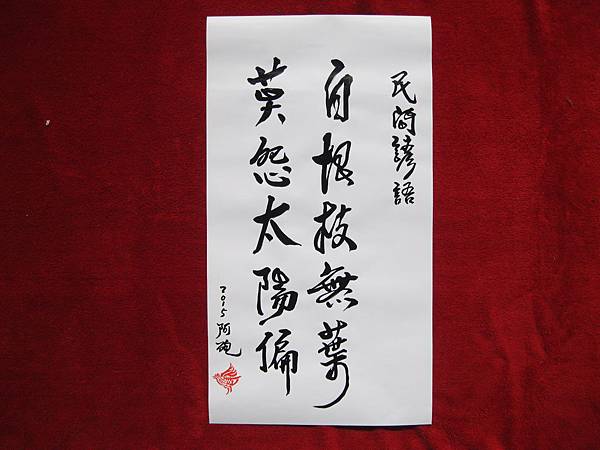 民間諺語
自恨枝無葉
莫怨太陽偏
2015 阿砲